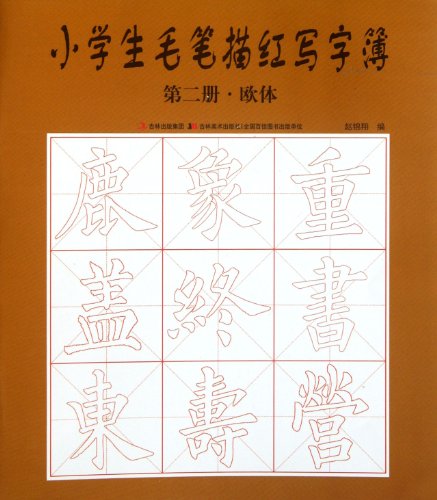 小学生毛笔描红写字簿
第二册·欧体
吉林出版集团 吉林美术出版社|全国百佳图书出版单位 赵锦翔 编
鹿 象 重
盖 終 書
東 壽 營